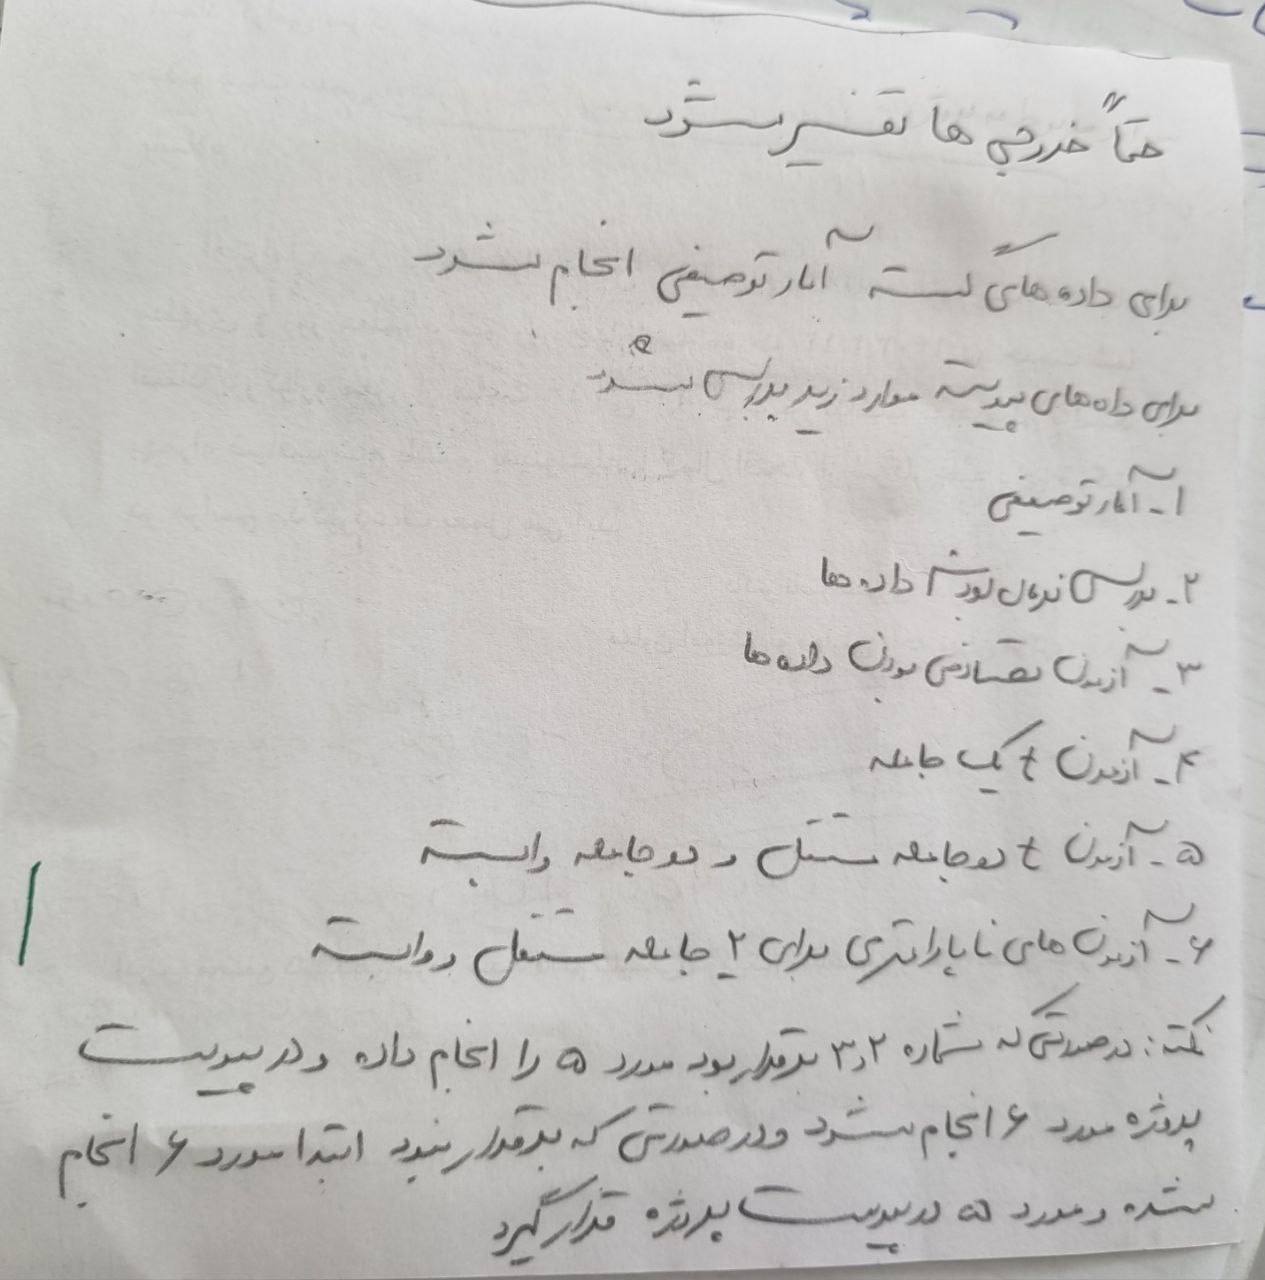 حتماً خروجی ها تفسیر شود
برای داده های گسسته آمار توصیفی انجام شود
برای داده های پیوسته موارد زیر بررسی شود
۱- آمار توصیفی
۲- بررسی نرمال بودن داده ها
۳- آزمون تصادفی بودن داده ها
۴- آزمون t یک جامعه
۵- آزمون t دو جامعه مستقل و دو جامعه وابسته
۶- آزمون های ناپارامتری برای ۲ جامعه مستقل و وابسته
نکته: در صورتی که شماره ۲و۳ برقرار بود مورد ۵ را انجام داده و در پیوست
پروژه مورد ۶ انجام شود و در صورتی که برقرار نبود ابتدا مورد ۶ انجام
شده و مورد ۵ در پیوست پروژه قرار گیرد